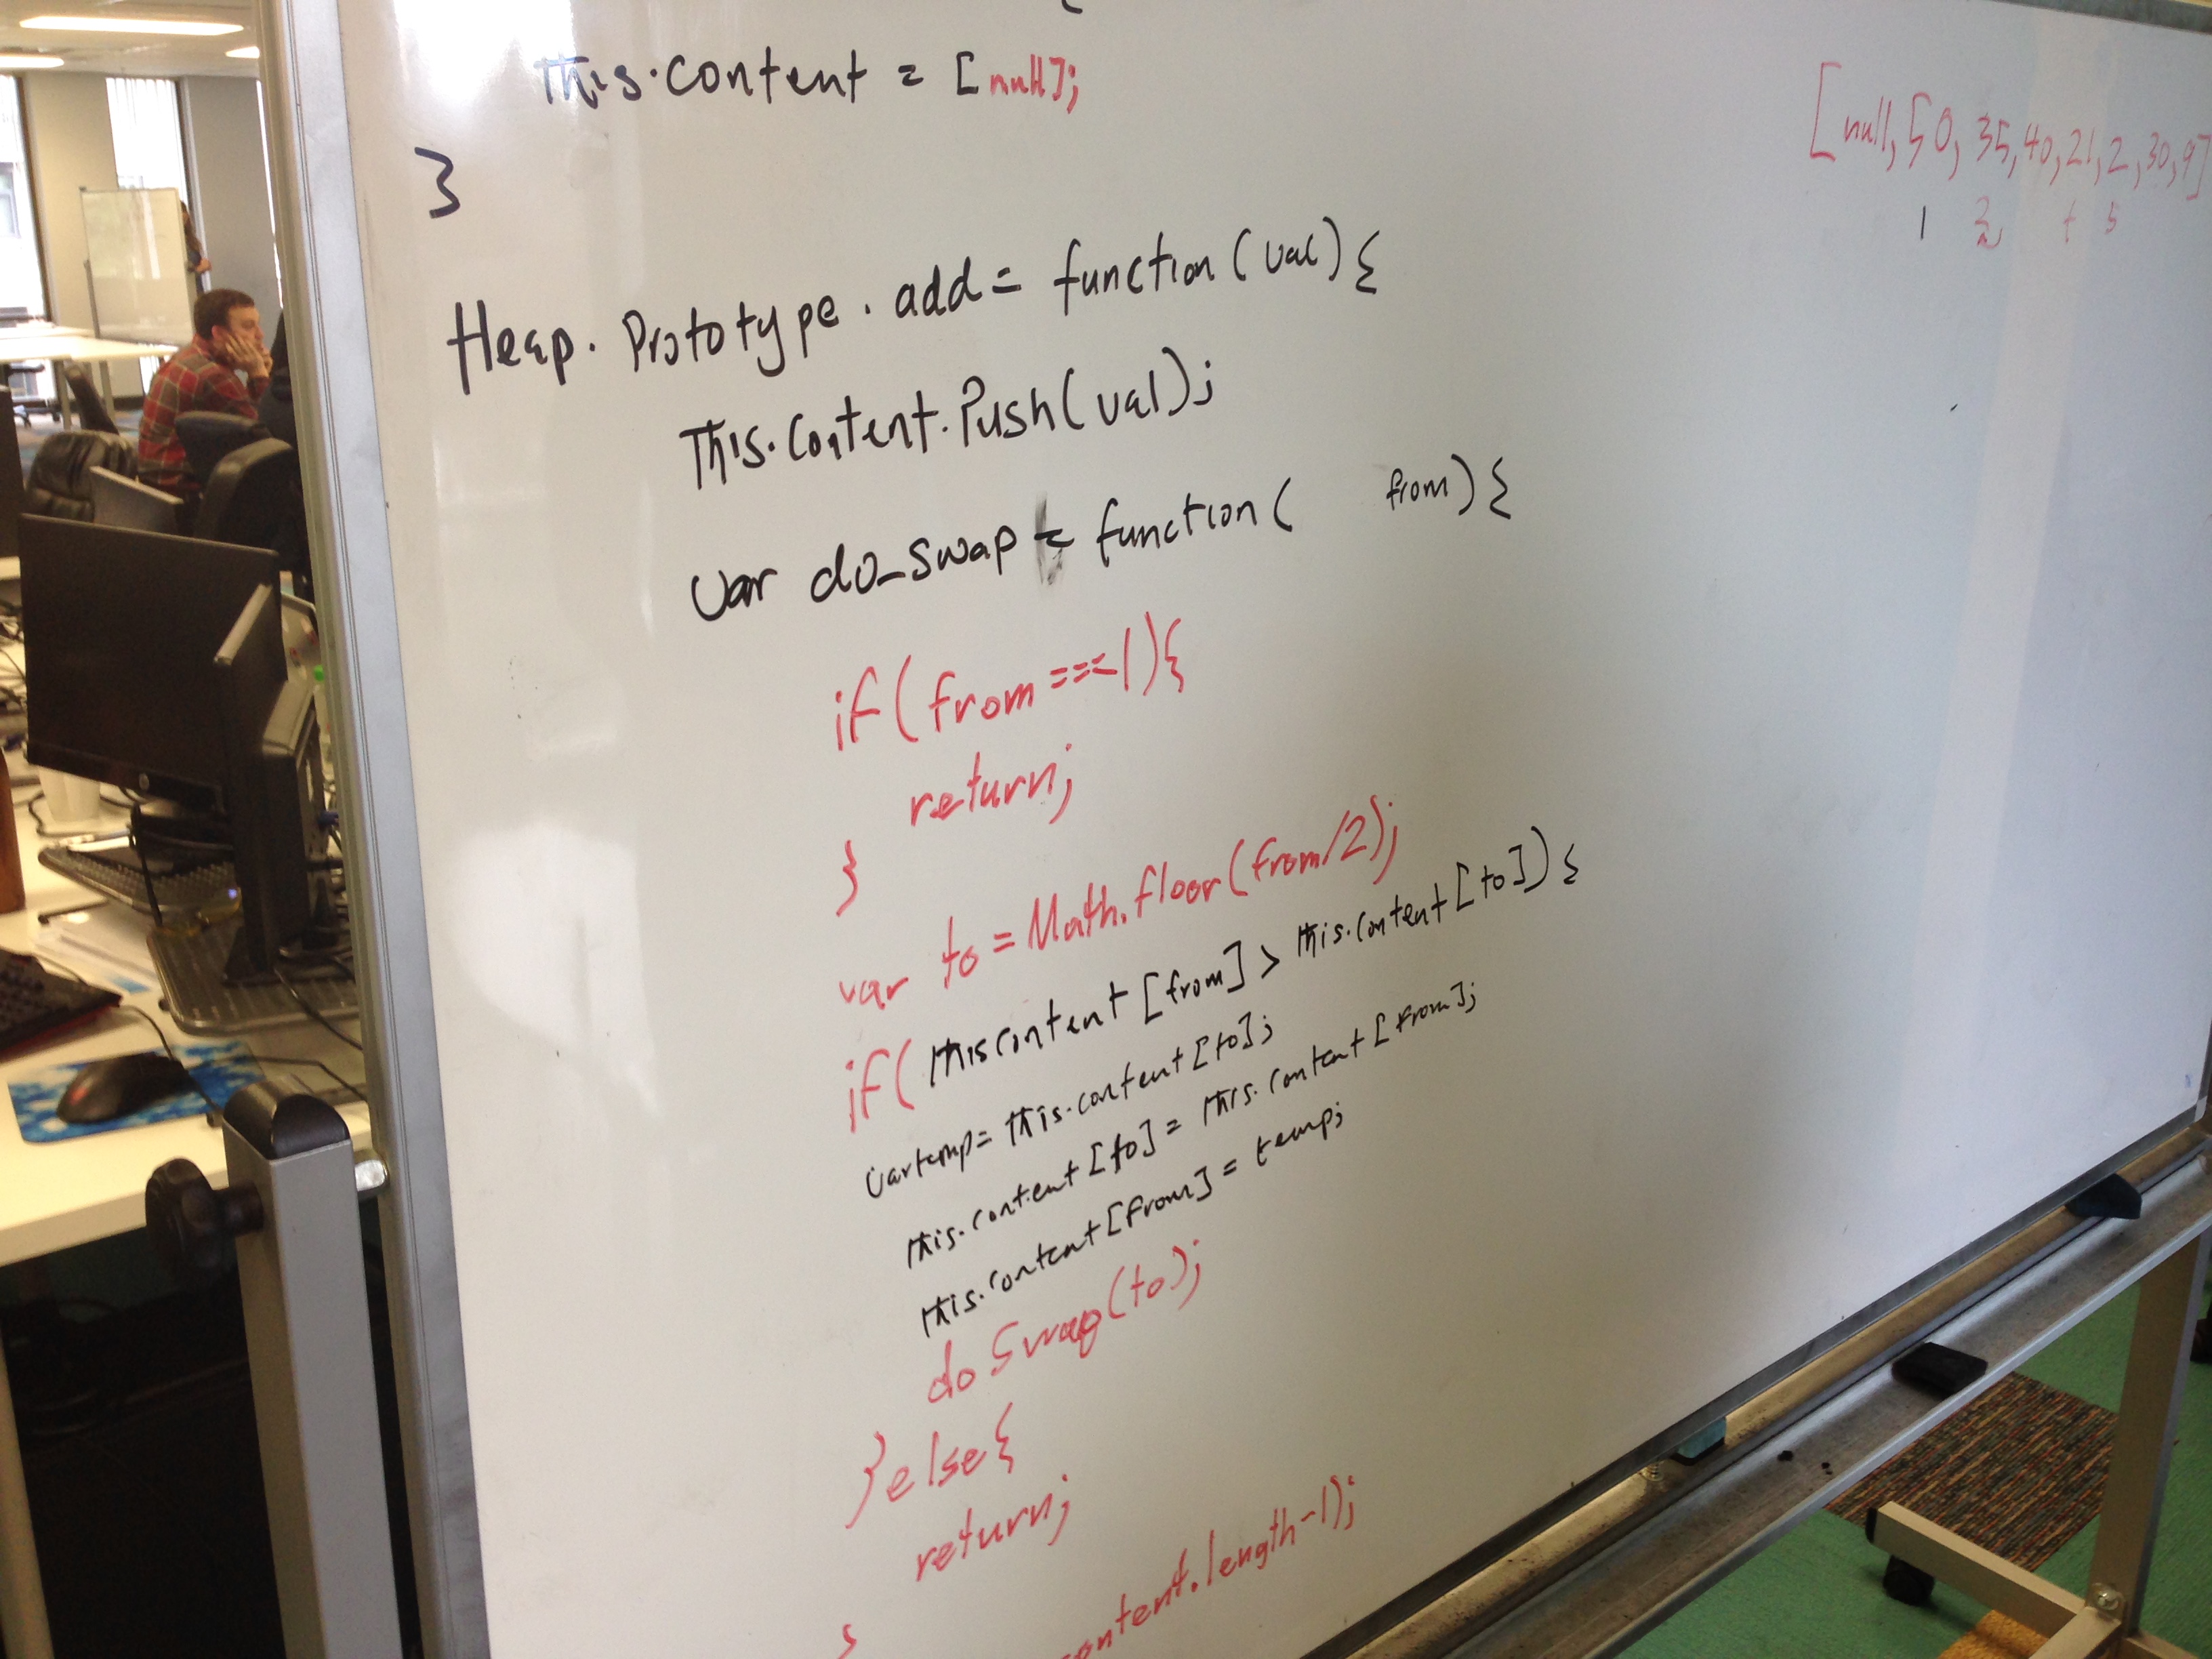 This.content = [null];
}
[null, 50, 35, 40, 21, 2, 30, 9]
1 2 4 5
Heap.Prototype.add = function(val){
This.Content.Push(val);
var do_swap = function( from){
if(from === 1){
return;
}
var to = Math.floor(from/2);
if(this.content[from] > this.content[to]){
var temp = this.content[to];
this.content[to] = this.content[from];
this.content[from] = temp;
doSwap(to);
}else{
return;
}
content.length-1);